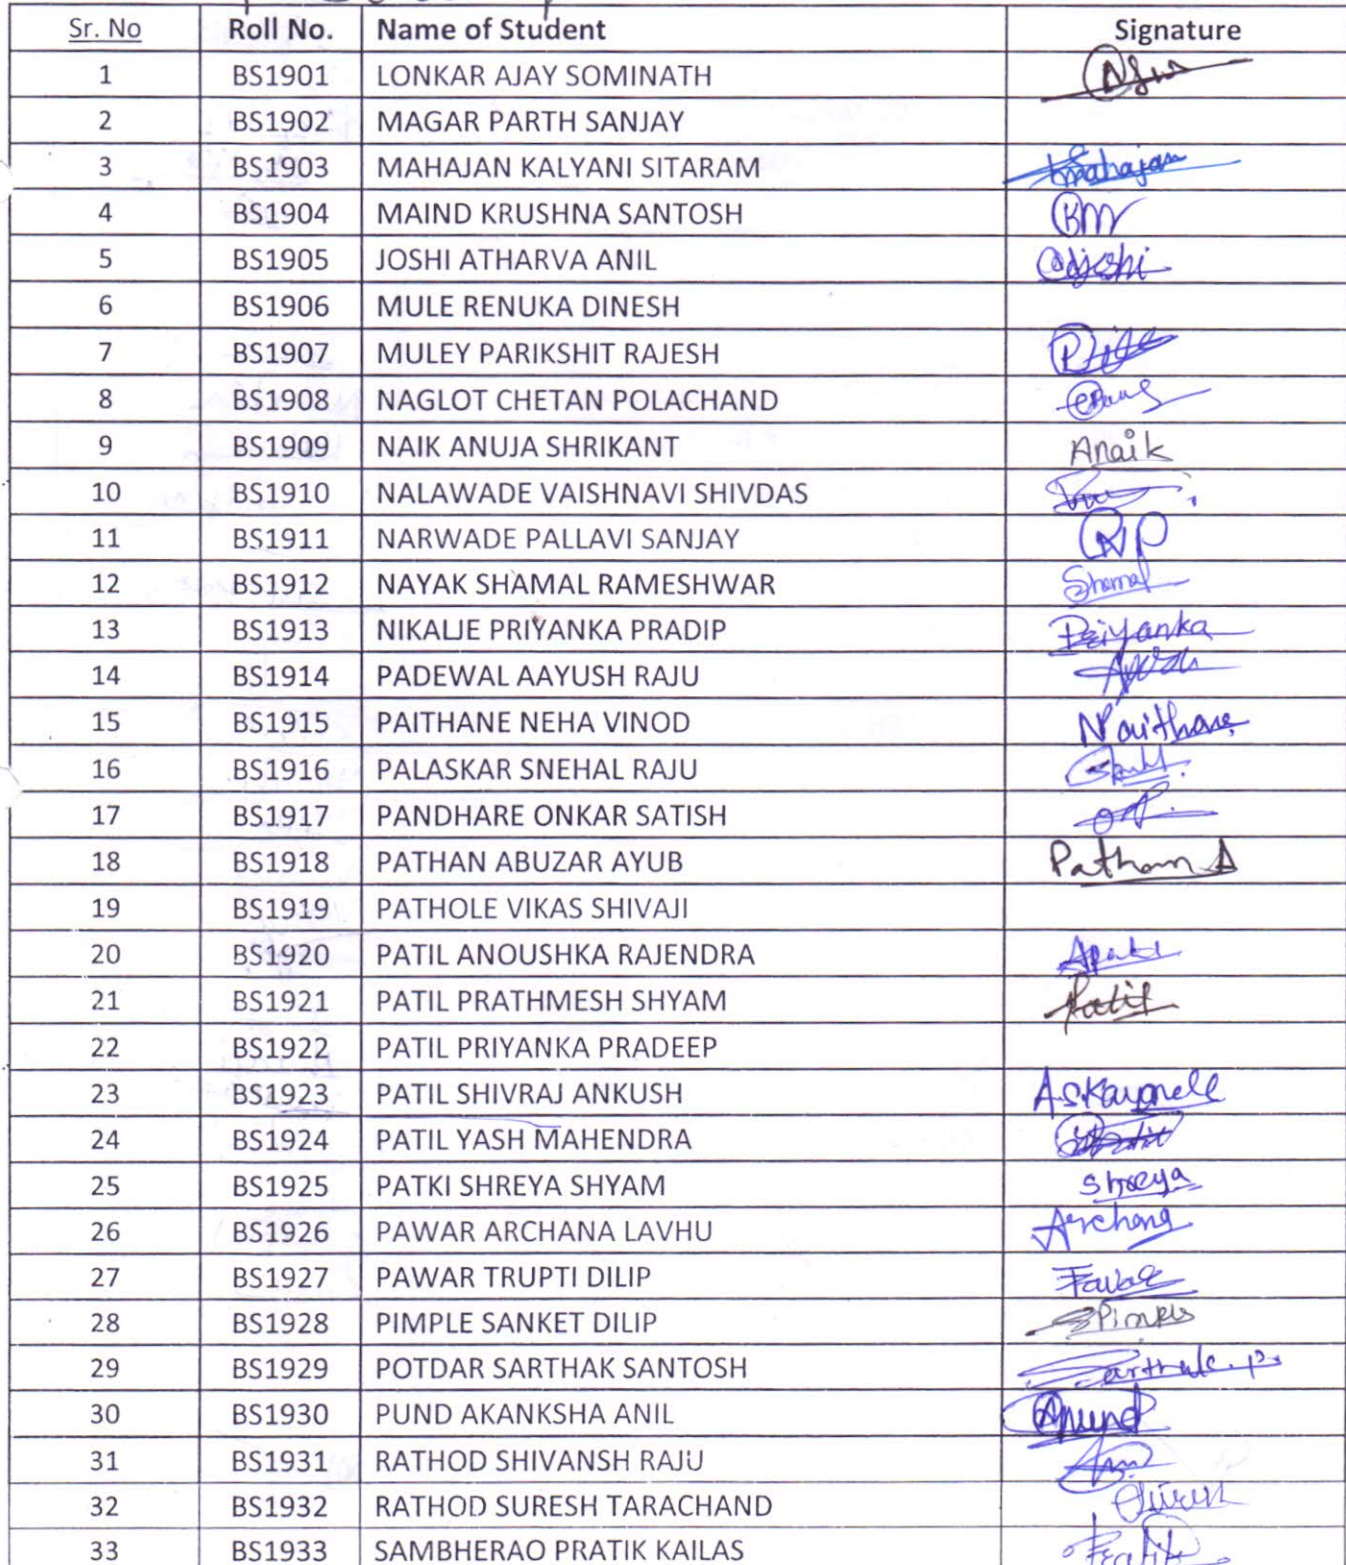 Sr. No Roll No. Name of Student Signature
1 BS1901 LONKAR AJAY SOMINATH
2 BS1902 MAGAR PARTH SANJAY
3 BS1903 MAHAJAN KALYANI SITARAM kmahajan
4 BS1904 MAIND KRUSHNA SANTOSH KM
5 BS1905 JOSHI ATHARVA ANIL
6 BS1906 MULE RENUKA DINESH
7 BS1907 MULEY PARIKSHIT RAJESH
8 BS1908 NAGLOT CHETAN POLACHAND
9 BS1909 NAIK ANUJA SHRIKANT Anaik
10 BS1910 NALAWADE VAISHNAVI SHIVDAS
11 BS1911 NARWADE PALLAVI SANJAY NP
12 BS1912 NAYAK SHAMAL RAMESHWAR Shamal
13 BS1913 NIKALJE PRIYANKA PRADIP Priyanka
14 BS1914 PADEWAL AAYUSH RAJU
15 BS1915 PAITHANE NEHA VINOD NPaithane
16 BS1916 PALASKAR SNEHAL RAJU
17 BS1917 PANDHARE ONKAR SATISH
18 BS1918 PATHAN ABUZAR AYUB Pathan A
19 BS1919 PATHOLE VIKAS SHIVAJI
20 BS1920 PATIL ANOUSHKA RAJENDRA Apatil
21 BS1921 PATIL PRATHMESH SHYAM Patil
22 BS1922 PATIL PRIYANKA PRADEEP
23 BS1923 PATIL SHIVRAJ ANKUSH
24 BS1924 PATIL YASH MAHENDRA
25 BS1925 PATKI SHREYA SHYAM Shreya
26 BS1926 PAWAR ARCHANA LAVHU Archana
27 BS1927 PAWAR TRUPTI DILIP
28 BS1928 PIMPLE SANKET DILIP SPimple
29 BS1929 POTDAR SARTHAK SANTOSH Sarthak.p.
30 BS1930 PUND AKANKSHA ANIL APund
31 BS1931 RATHOD SHIVANSH RAJU
32 BS1932 RATHOD SURESH TARACHAND Suresh
33 BS1933 SAMBHERAO PRATIK KAILAS Pratik